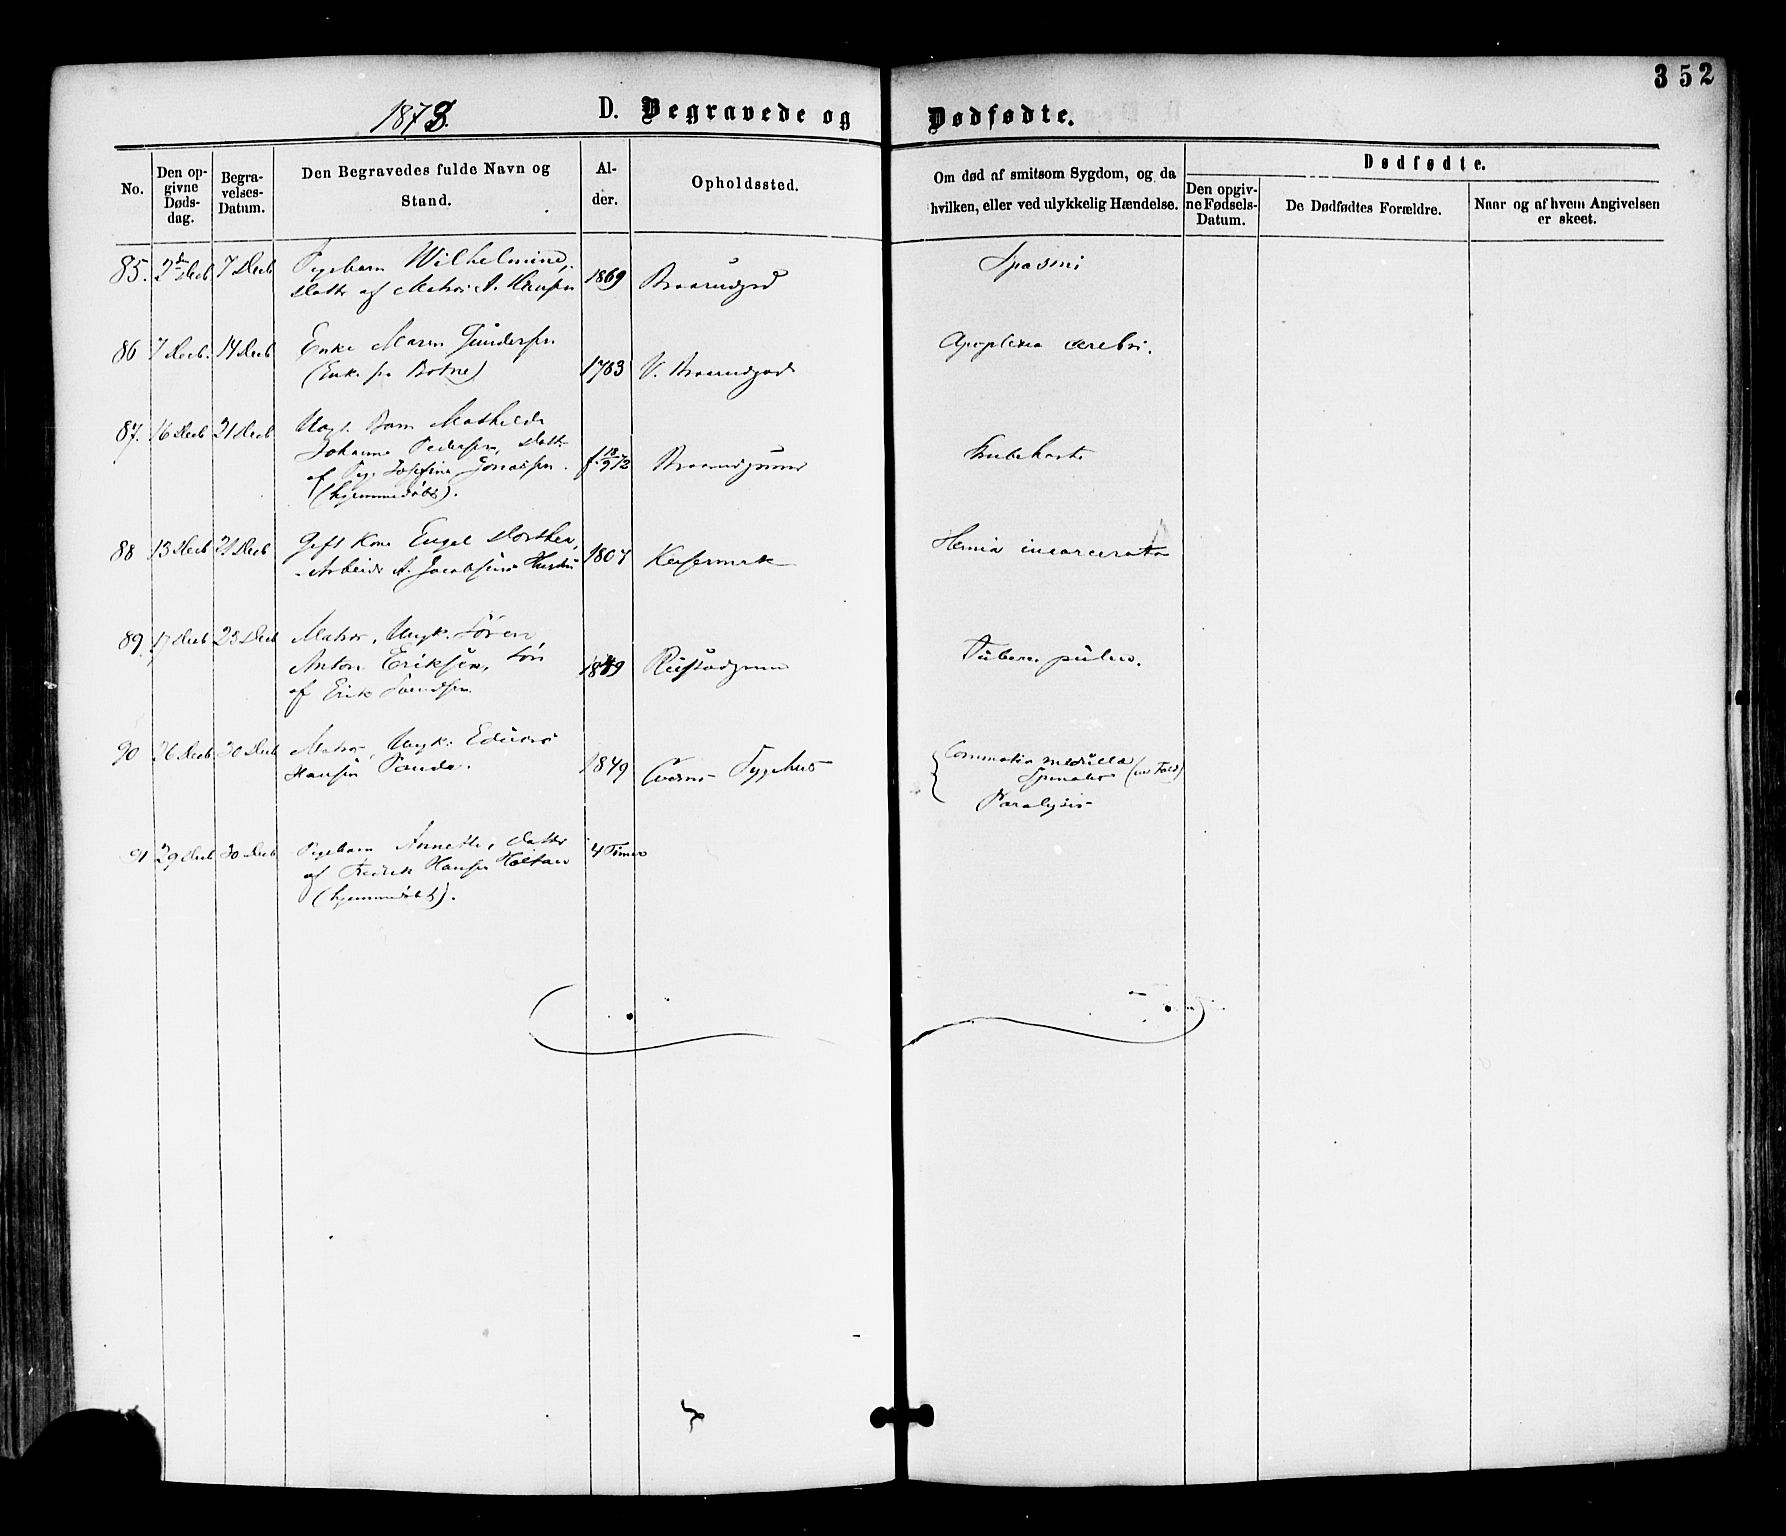 352
1873.
D. Begravede og Dødfødte.
No.
Den opgivne Døds-dag.
Begravelses-Datum.
Den Begravedes fulde Navn og Stand.
Alder.
Opholdssted.
Om død af smitsom Sygdom, og da hvilken, eller ved ulykkelig Hændelse.
Dødfødte.
Den opgivne Fødsels-Datum.
De Dødfødtes Forældre.
Naar og af hvem Angivelsen er skeet.
85. 2 Decb 7 Decb Pigebarn Wilhelmine, 1869 Spasmi
Datter af Matros A. Hansen
86 7 Decb. 14 Decb Enke Maren Gundersen 1783 Apoplexia cerebri.
(Enke fra Botne)
87. 16 Decb 21 Decb Uægt. Barn Mathilde f. 18/9 72 Strubehoste
Johanne Pedersen, Datter
af Pige Josefine Jonassen.
(hjemmedøbt).
88 13 Decb 21 Decb Gift Kone Engel Dorthea, 1807 Hernia incarcerata
Arbeider A. Jacobsens Hustru
89. 17 Decb 23 Decb Matros, Ungk. Søren 1849 Tuberc. pulm.
Anton Eriksen, Søn
af Erik Svendsen
90 26 Decb 30 Decb Matros, Ungk. Eduard 1849 Sygehus Commotio medulla
Hansen Sande. Spinalis (ved Fald)
Paralysis
91 29 Decb 30 Decb Pigebarn Annette, Datter 4 Timer
af Fredrik Hansen Holtan
(hjemmedøbt).